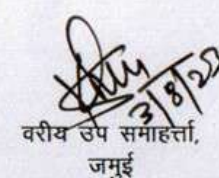 3/8/22
वरीय उप समाहर्त्ता,
जमुई